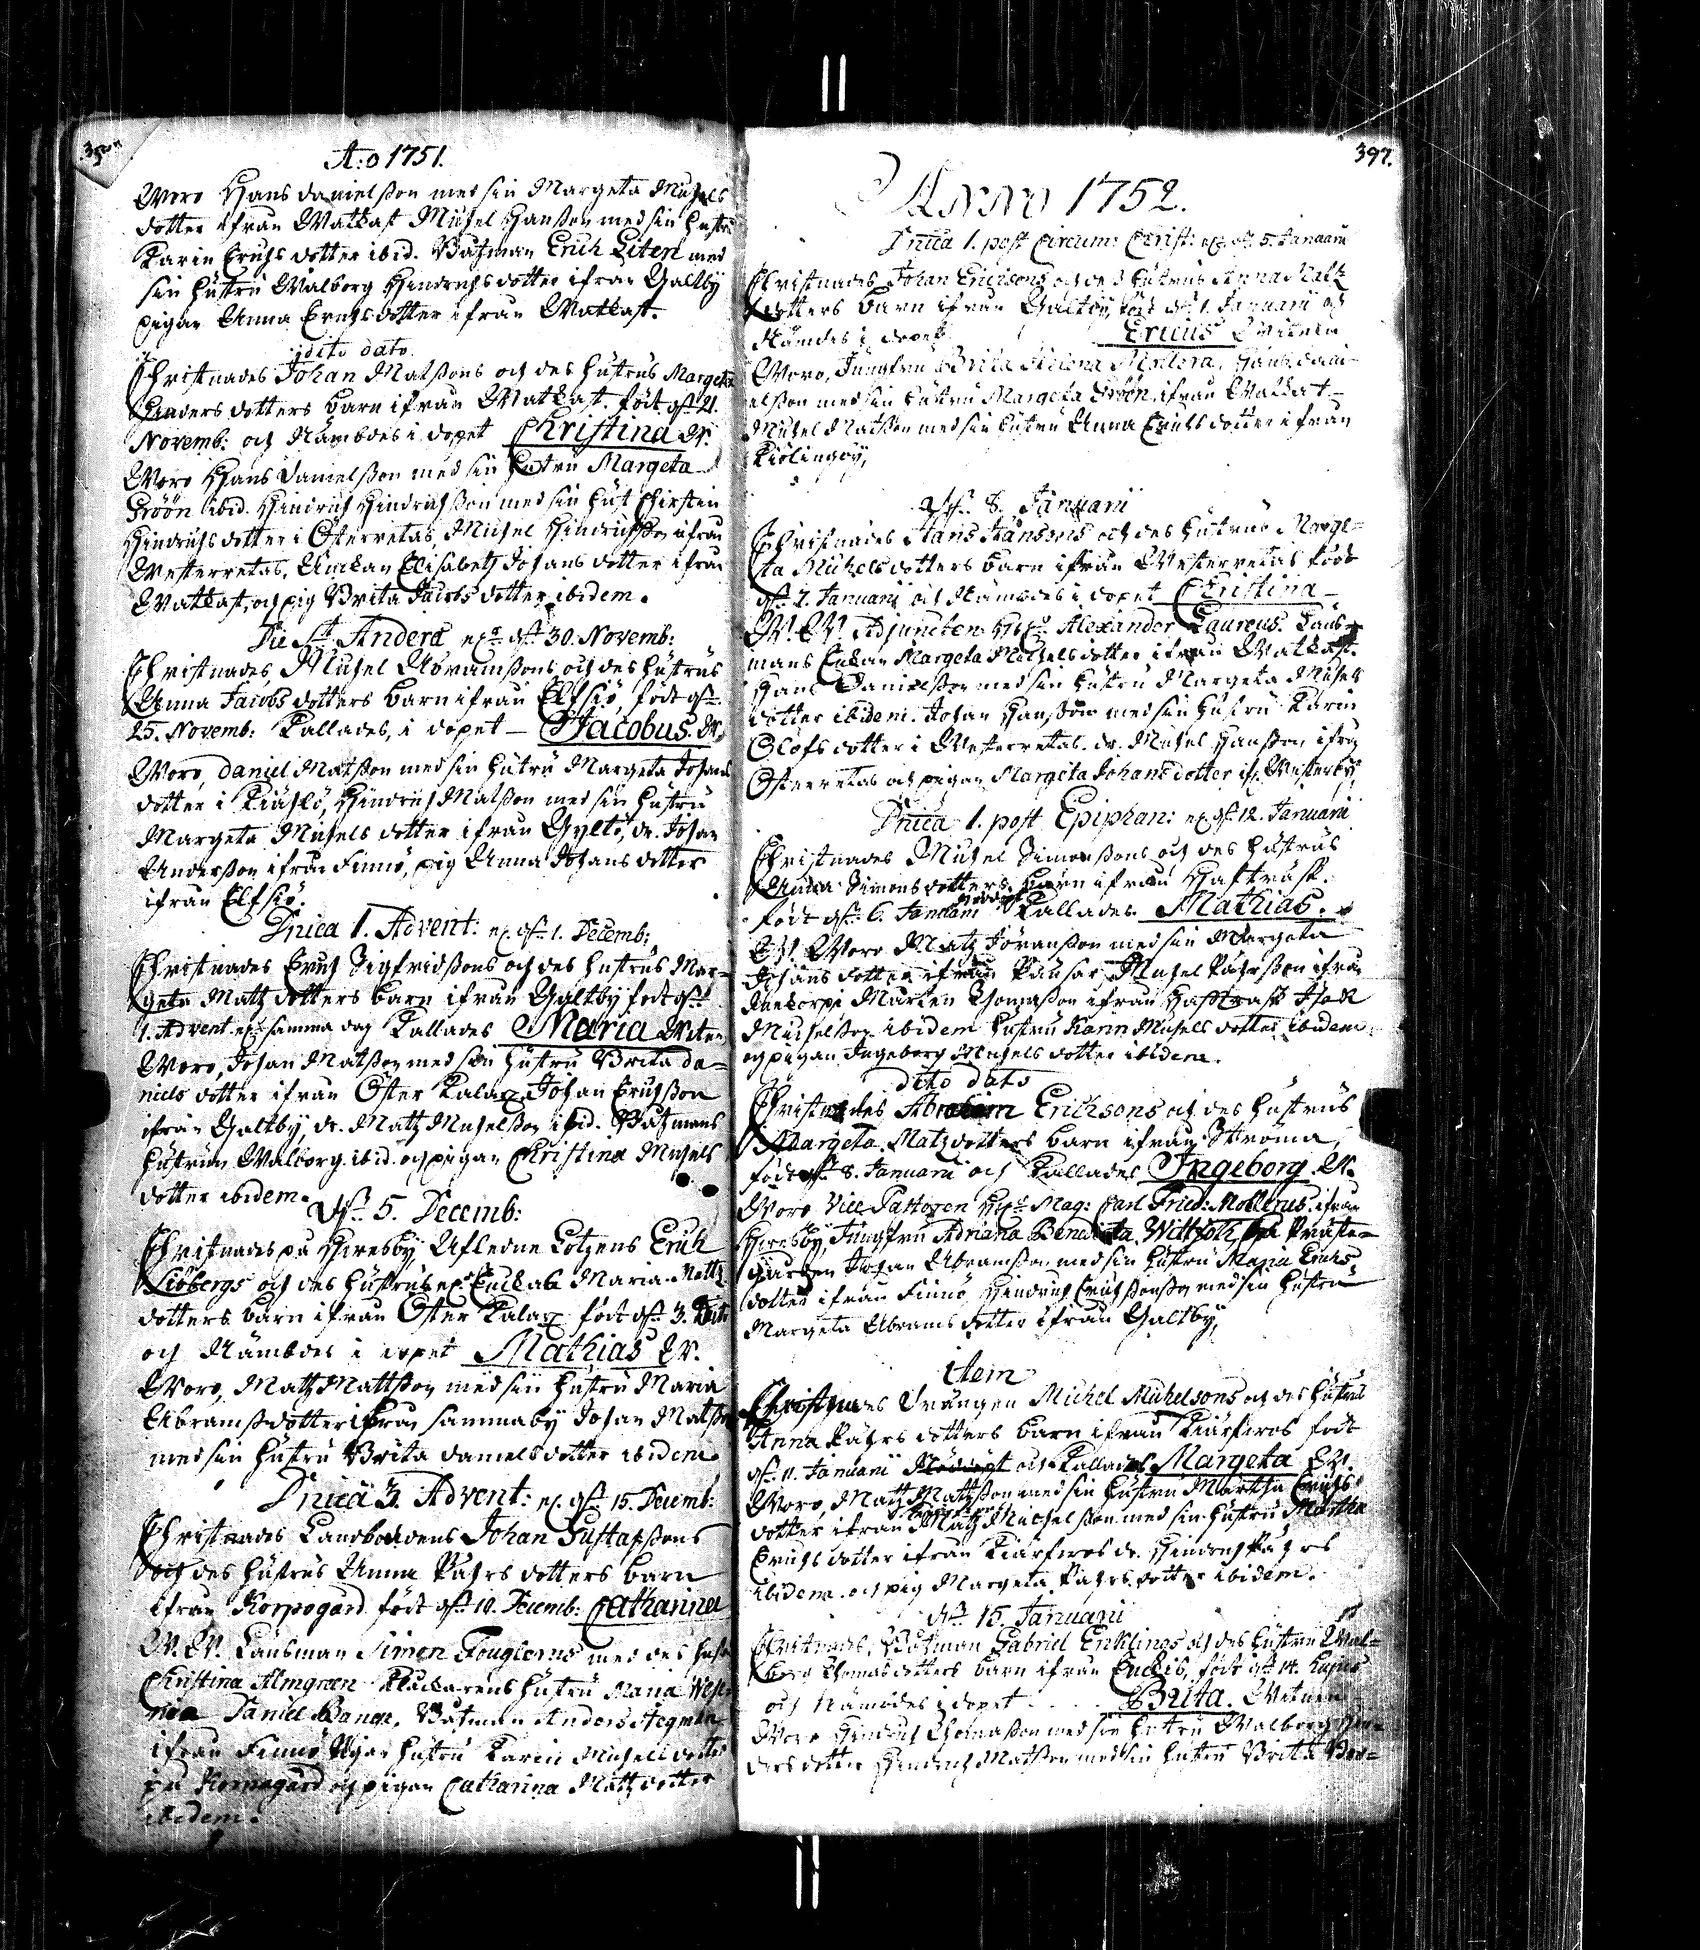 A:o 1751.
Woro Hans Danielsson med sin Margeta Michels
dotter ifrån Wattkast Michel Hansson med sin hustru
Karin Erichs dotter ibid. Båtzman Erich Liten med
sin hustru Walborg Hindrichs dotter ifrån Galtby
pigan Anna Erichs dotter ifrån Wattkast.
dito dato
Christnades Johan Matssons och des hustrus Margeta
Anders dotters barn ifrån Wattkast. född d. 21.
Novemb: och nämbdes i dopet Christina W.
Woro Hans Danielsson med sin hustru Margeta
Gröön ibid. Hindrich Hindrichsson med sin hust Christin
Hindrichs dotter i Österretas, Michel Hindrichsson ifrån
Westerretas, Enckan Elisabeth Johans dotter ifrån
Wattkast, och pig Brita Jacobs dotter ibidem.
Die St. Andera d. 30. Novemb:
Christnades, Michel Abramssons och des hustrus
Anna Jacobs dotters barn ifrån Elfsiö, född d.
25. Novemb: Kallades, i dopet – Jacobus. W.
Woro, Daniel Matsson med sin hustru Margeta Johans
dotter i Hindrich Matsson med sin hustru
Margeta Michels dotter ifrån Gyltö, dr. Johan
Andersson ifrån Finnö, pig Anna Johans dotter
ifrån Elfsiö.
Dnica 1. Advent: d. 1. Decemb:
Christnades Erich Sigfridssons och des hustrus Mar-
geta Matz dotters barn ifrån Galtby född d.
1. Advent samma dag Kallades Maria Witne
Woro, Johan Matsson med sin hustru Brita Da-
niels dotter ifrån Öster Kalax, Johan Erichsson
ifrån Galtby, dr. Matz Michelsson ibid. Båtzmans
hustrun Walborg ibid. och pigan Christina Michels
dotter ibidem.
d. 5. Decemb:
Christnades på Hiresby, Afledne Lotzens Erich
Siöbergs och des hustrus Enckas Maria Mattz
dotters barn ifrån Öster Kalax född d. 3.
och nämbdes i dopet Mathias W.
Woro, Matz Mattsson med sin hustru Maria
Abrams dotter ifrån sammaby Johan Matsson
med sin hustru Brita Daniels dotter ibidem
Dnica 3. Advent: d. 15. Decemb:
Christnades Landbondens Johan Gustafssons
och des hustrus Anna Påhrs dotters barn
ifrån Korpogård född d. 10. Decemb: Catharina
W. W. Länsman Simon Fouglerns med des hust
Christina Almgren Klåckarens hustru Maria
Daniel Bange, Båtzman Anders Hegman
ifrån Finnö hustru Karin Michels dotter
på Korpogård och pigan Catharina Matz dotter
ibidem.
397.
Anno 1752.
Dnica 1. post Circum: Christ: d. 5. Januarii
Christnades Johan Ericksons och des hustrus Anna Matz
dotters barn ifrån Galtby, född d. 1. Januarii och
Nämdes i dopet Ericus Witnen
Woro, Jungfru Brita Helena Hans Dani-
elsson med sin hustru Margeta Gröön, ifrån Wattkast
Michel Matsson med sin hustru Anna Erichs dotter ifrån
Kiölingöy,
d. 8. Januarii
Christnades Hans Hanssons och des hustrus Marge-
ta Michels dotters barn ifrån Westerretas född
d. 7. Januarii och Nämdes i dopet Christina
W. W. Adjuncten Alexander Laureus. Läns-
mans Enkan Margeta Michels dotter ifrån Wattkast.
Hans Danielsson med sin hustru Margeta Michels
dotter ibidem. Johan Hansson med sin hustru Karin
Olofs dotter i Westerretas. dr. Michel Hansson ifrån
Österretas och pigan Margeta Johans dotter if. Westerby,
Dnica 1. post Epiphan: d. 12. Januarii
Christnades Michel Simonssons och des hustrus
Anna Simons dotters barn ifrån Hafträsk.
född d. 6. Januarii Kallades Mathias.
W. Woro Matz Jöransson med sin Margeta
Johans dotter ifrån Michel Påhrsson ifrån
Mårten Thomasson ifrån Hafträsk
Michelsson ibidem hustru Karin Michels dotter ibidem
och pigan Ingeborg Michels dotter ibidem.
dito dato
Christnades Abraham Erichsons och des hustrus
Margeta Matz dotters barn ifrån Ströma,
född d. 8. Januarii och Kallades Ingeborg W.
Woro Vice Pastoren Mag: Carl Fried: Mollerus. ifrån
Hiresby, Jungfru Adriana Benedicta Wittfoth på Präste-
gården Johan Abramsson med sin hustru Maria Erichs
dotter ifrån Finnö Hindrich Erichsson med sin hustru
Margeta Abrams dotter ifrån Galtby,
item
Christnades Michel Michelsons och des hustrus
Anna Påhrs dotters barn ifrån född
d. 11. Januarii och Kallades Margeta W.
Woro, Matz Mattsson med sin hustru Martha Erichs
dotter ifrån Matz Michelsson med sin hustru Martha
Erichs dotter ifrån dr. Hindrich Påhrs
ibidem. och pig Margeta Påhrs dotter ibidem.
d. 15. Januarii
Christnades, Båtzman Gabriel Enklings och des hustru Wal-
borg Thomas dotters barn ifrån född d. 14. hujus
och nämbdes i dopet Brita. Witnen
Woro Hindrich Thomasson med sin hustru Walborg
ders dotter Hindrich Matsson med sin hustru Brita